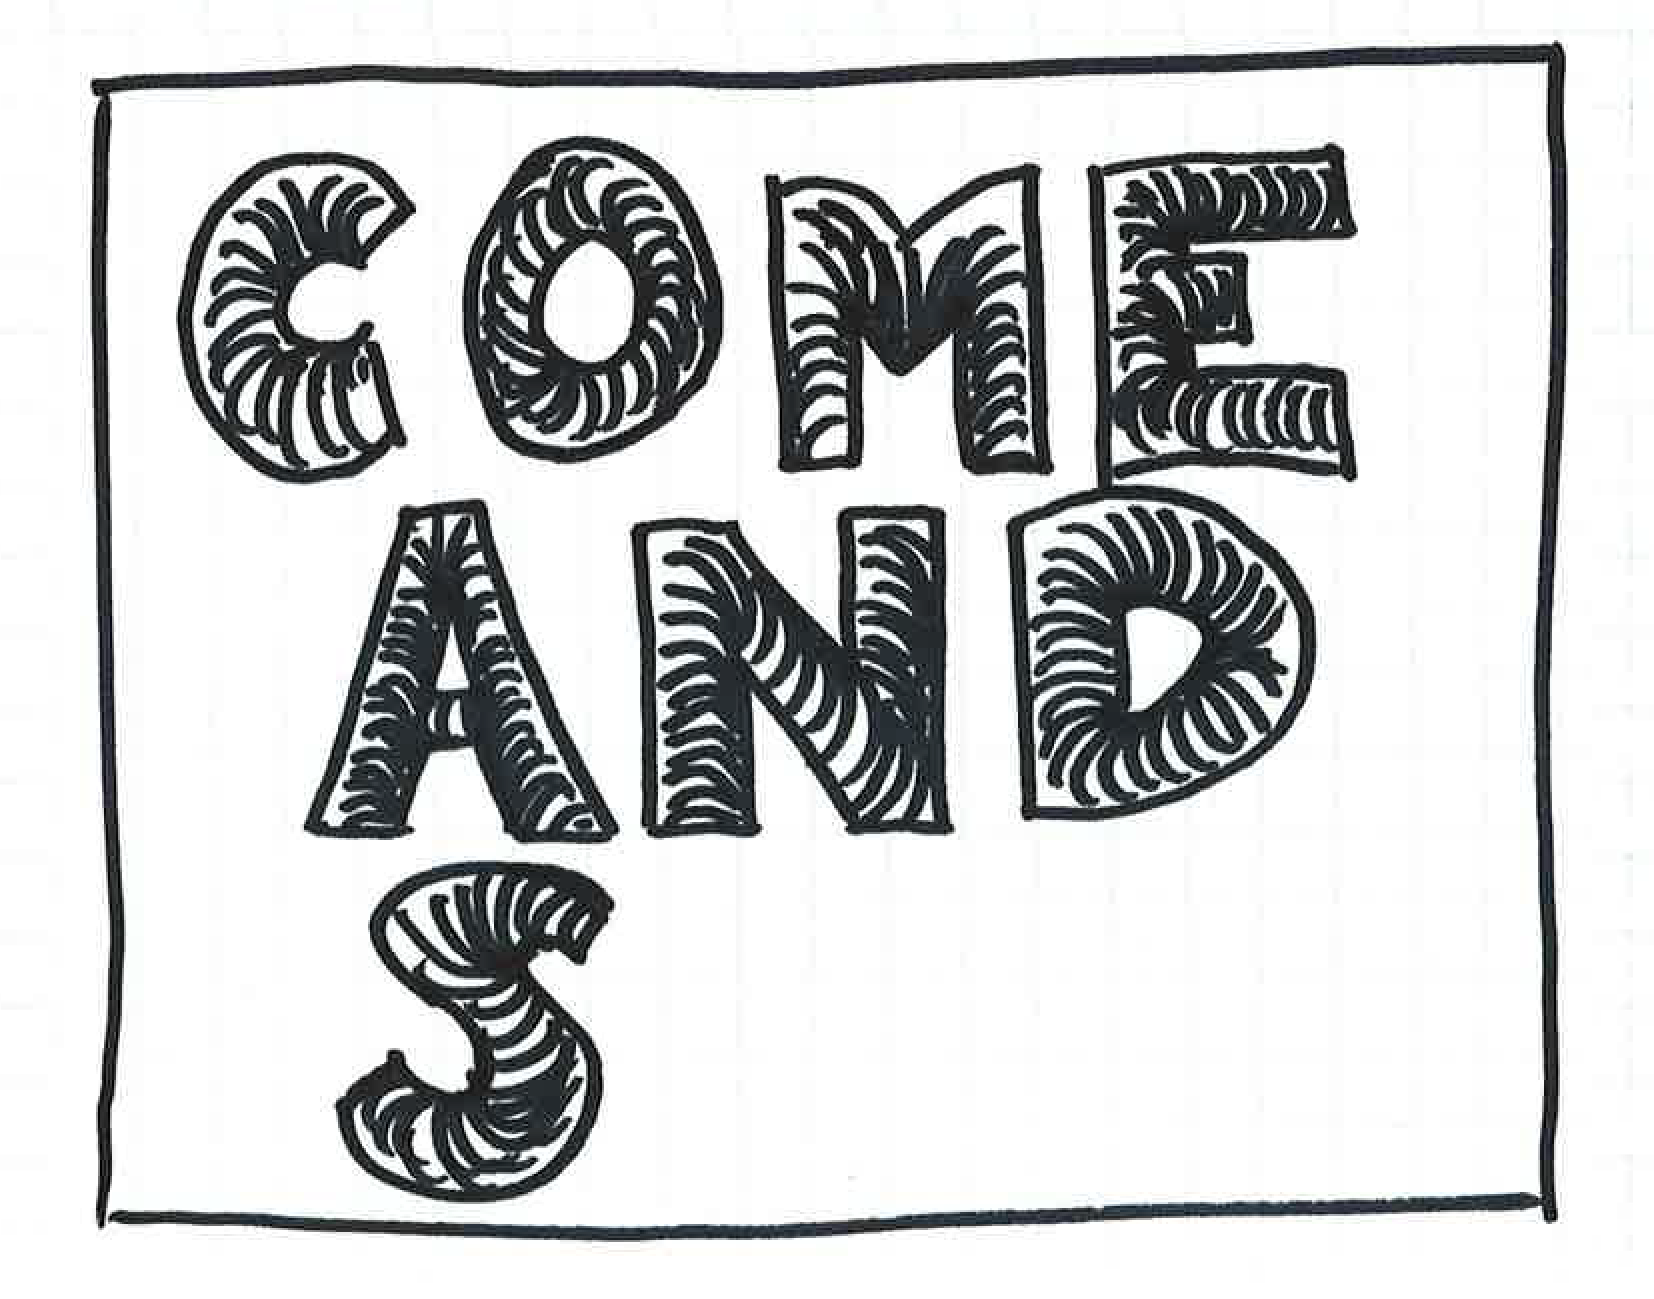 COME
AND
S